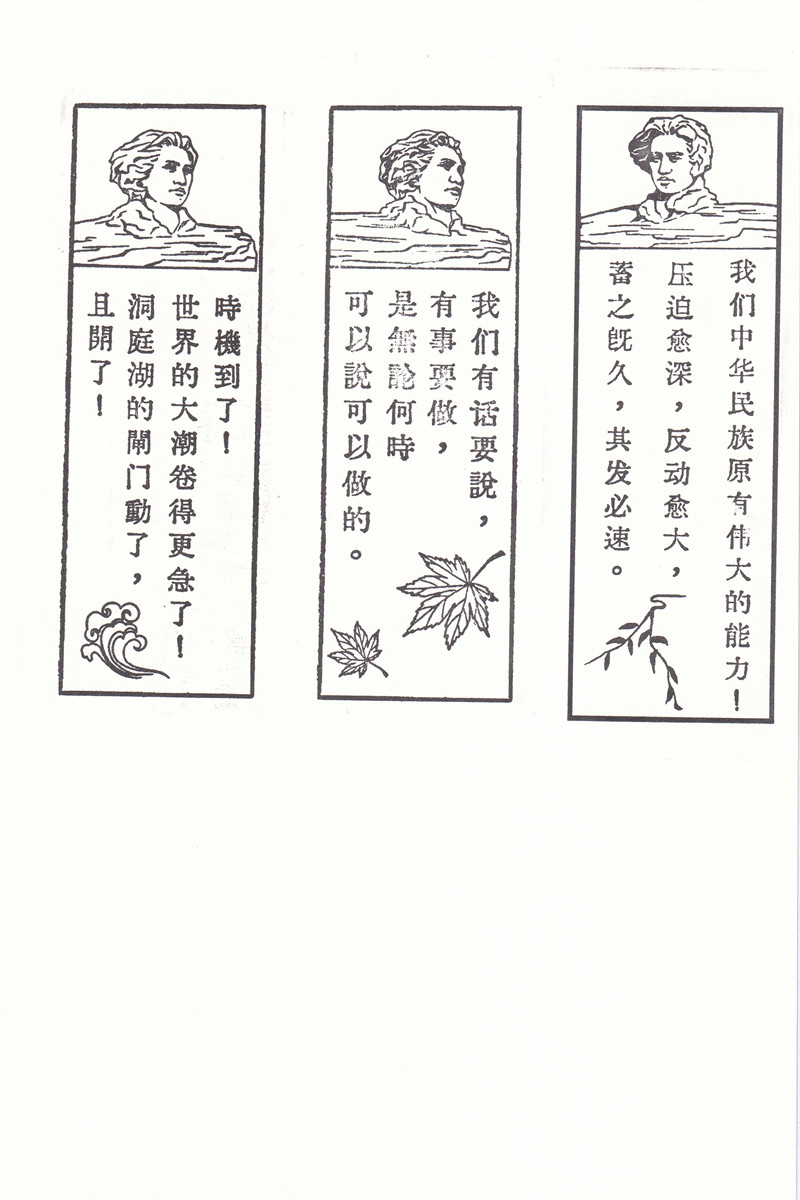 我们中华民族原有伟大的能力！
压迫愈深，反动愈大，
蓄之既久，其发必速。
我们有话要說，
有事要做，
是無論何時
可以說可以做的。
時機到了！
世界的大潮卷得更急了！
洞庭湖的閘门動了，
且開了！